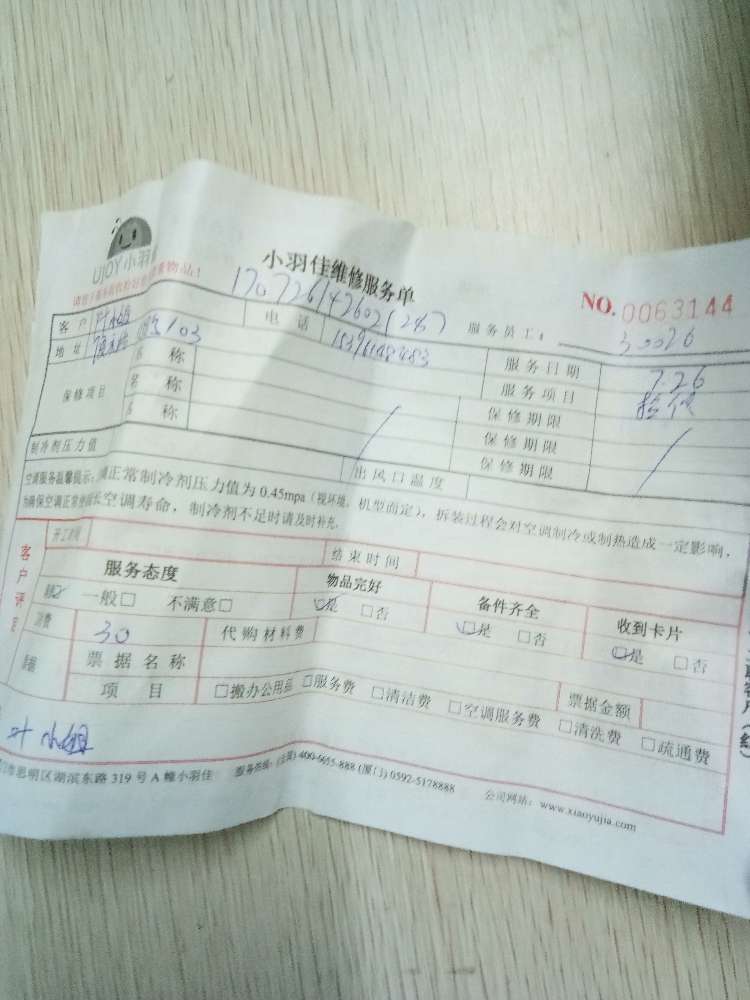 UJOY小羽
小羽佳维修服务单
NO.0063144
服务员工: 30026
客户 电话
地址 103 服务日期 7.26
保修项目 名称 服务项目
名称 保修期限
名称 保修期限
保修期限
制冷剂压力值 出风口温度
空调服务温馨提示: 正常制冷剂压力值为0.45mpa(视环境、机型而定),拆装过程会对空调制冷或制热造成一定影响,
为确保空调正常 空调寿命,制冷剂不足时请及时补充.
开工时间 结束时间
客户评定
服务态度 物品完好 备件齐全 收到卡片
一般□ 不满意□ □是 □否 □是 □否 □是 □否
30 代购材料费
票据名称 票据金额
项目 □搬办公用品 □服务费 □清洁费 □空调服务费 □清洗费 □疏通费
叶小姐
思明区湖滨东路319号A幢小羽佳 服务热线: 400-6655-888 (厦门) 0592-5178888 公司网站: www.xiaoyujia.com